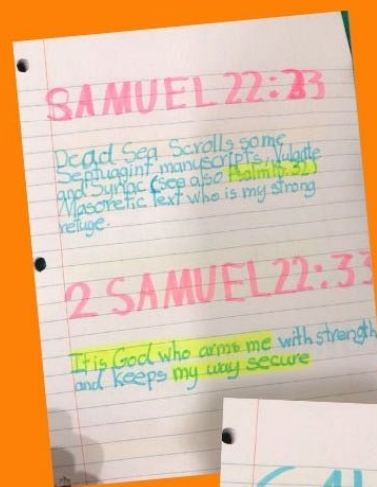 SAMUEL 22:33
Dead Sea Scrolls some
Septuagint manuscripts, Vulgate
and Syriac (see also Psalm
Masoretic Text who is my strong
refuge.
2 SAMUEL 22:33
It is God who arms me with strength
and keeps my way secure